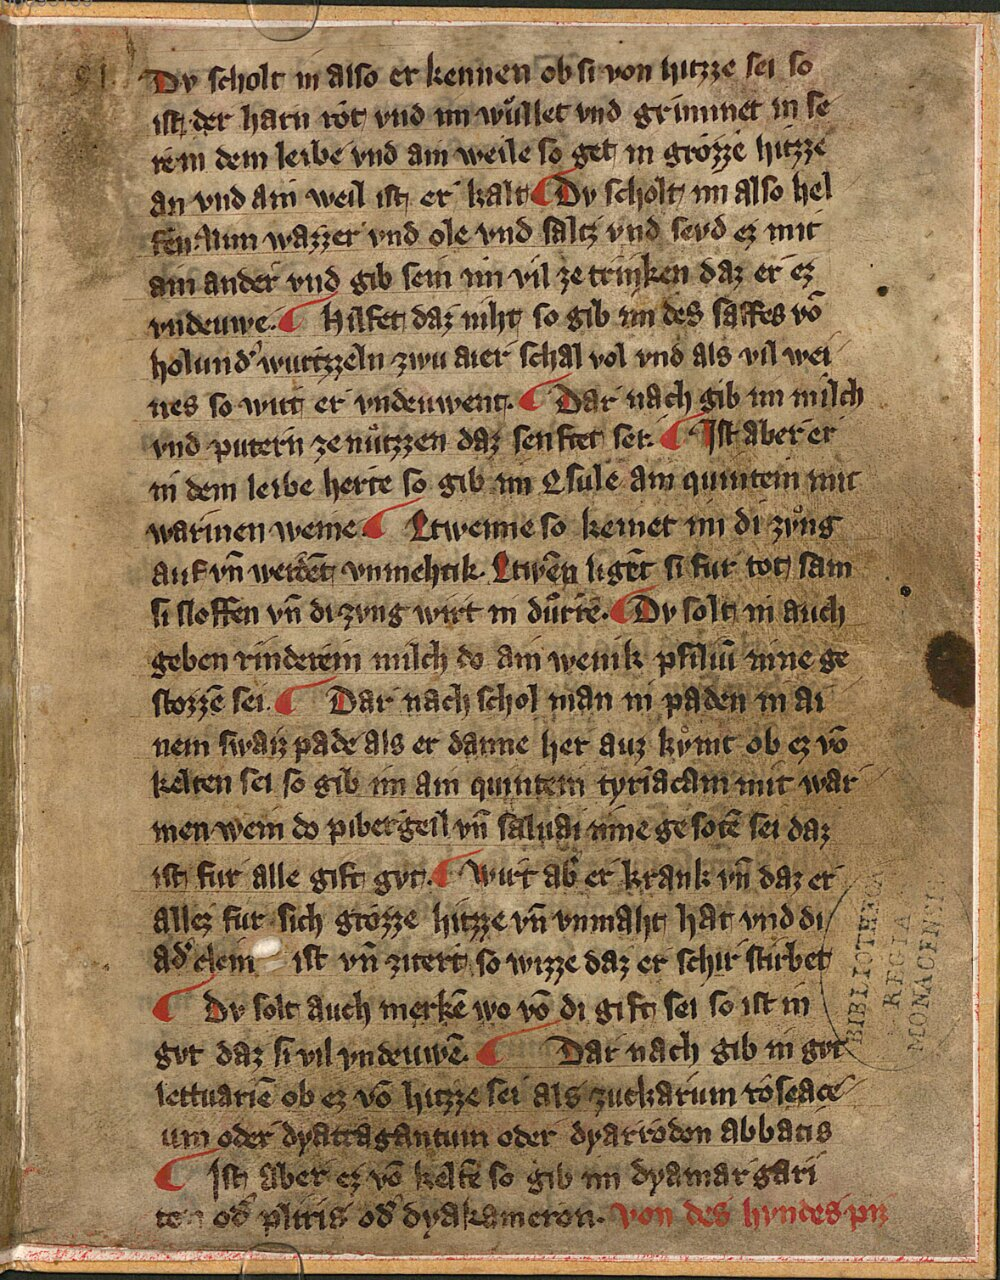 Dv scholt in also er kennen ob si von hitzze sei so
ist der harn rot vnd im wuͤllet vnd grimmet in se
rem dem leibe vnd ain weile so get in grozze hitzze
an vnd ain weil ist er kalt Dv scholt im also hel
fen. Nim wazzer vnd ole vnd saltz vnd seyd ez mit
ain ander vnd gib sein im vil ze trinken daz er ez
vndeuwe. Hilfet daz niht so gib im des saffes võ
holund' wurtzzeln zwu aier schal vol vnd als vil wei
nes so wirt er vndeuwent. Dar nach gib im milch
vnd putern ze nuͤtzzen daz senftet ser. Ist aber er
in dem leibe herte so gib im Esule ain quintein mit
warmen weine Etwenne so kemet im di zvng
auf vñ werdẽt vnmehtik. Etwẽn ligẽt si fur tot sam
si sloffen vñ di zvng wirt in duͤrre. Dv solt in auch
geben rinderein milch do ain wenik psiliũ inne ge
stozzẽ sei. Dar nach schol man in paden in ai
nem swaiz pade als er danne her auz kvmt ob ez võ
kelten sei so gib im ain quintein tyriacam mit war
men wein do pibergeil vñ saluai inne gesotẽ sei daz
ist fur alle gift gvt. Wirt ab' er krank vñ daz er
allez fur sich grozze hitzze vñ vnmaht hat vnd di
ad' clein ist vñ zitert so wizze daz er schir stirbet
Dv solt auch merkẽ wo võ di gift sei so ist in
gvt daz si vil vndeuwẽ. Dar nach gib in gvt
lettuariẽ ob ez võ hitzze sei als zuckarum roseace
um oder dyatragantum oder dyarrodon abbatis
Ist aber ez võ kelte so gib im dyamargari
ton od' pliris od' dyakameron. Von des hvndes piz
BIBLIOTHECA
REGIA
MONACENSIS